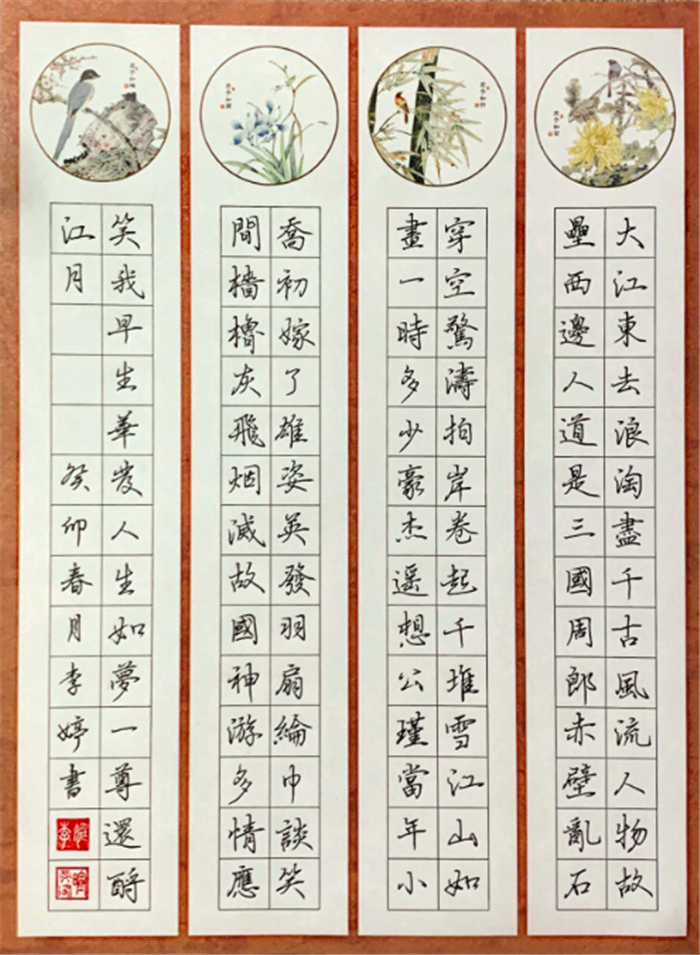 大江東去浪淘盡千古風流人物故
壘西邊人道是三國周郎赤壁亂石
穿空驚濤拍岸卷起千堆雪江山如
畫一時多少豪杰遥想公瑾當年小
喬初嫁了雄姿英發羽扇綸巾談笑
間檣櫓灰飛烟滅故國神游多情應
笑我早生華發人生如夢一尊還酹
江月
癸卯春月李婷書